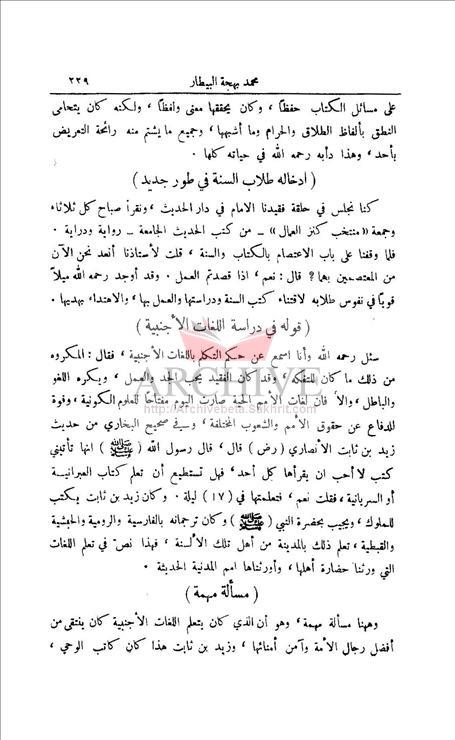 محمد بهجة البيطار ٢٣٩
على مسائل الكتاب حفظاً ، وكان يحققها معنى ولفظاً ، ولكنه كان يتحامى
النطق بألفاظ الطلاق والحرام وما أشبهها ، وجميع ما يشتم منه رائحة التعريض
بأحد ، وهذا دأبه رحمه الله في حياته كلها .
( ادخاله طلاب السنة في طور جديد )
كنا نجلس في حلقة فقيدنا الامام في دار الحديث ، ونقرأ صباح كل ثلاثاء
وجمعة « منتخب كنز العمال » — من كتب الحديث الجامعة — رواية ودراية .
فلما وقفنا على باب الاعتصام بالكتاب والسنة ، قلت لأستاذنا أنعد نحن الآن
من المعتصمين بهما ? قال : نعم ، اذا قصدتم العمل . وقد أوجد رحمه الله ميلاً
قوياً في نفوس طلابه لاقتناء كتب السنة ودراستها والعمل بها ، والاهتداء بهديها .
( قوله في دراسة اللغات الأجنبية )
سئل رحمه الله وأنا اسمع عن حكم التكلم باللغات الأجنبية ، فقال : المكروه
من ذلك ما كان للتفكه ، وقد كان الفقيد يحب الجد والعمل ، ويكره اللغو
والباطل ، والا فان لغات الأمم الحية صارت اليوم مفتاحاً للعلوم الكونية ، وقوة
للدفاع عن حقوق الأمم والشعوب المختلفة ، وفي صحيح البخاري من حديث
زيد بن ثابت الأنصاري ( رض ) قال ، قال رسول الله ( ﷺ ) انها تأتيني
كتب لا احب ان يقرأها كل أحد ، فهل تستطيع أن تعلم كتاب العبرانية
أو السريانية ، فقلت نعم ، فتعلمتها في ( ١٧ ) ليلة . وكان زيد بن ثابت يكتب
للملوك ، ويجيب بحضرة النبي ( ﷺ ) وكان ترجمانه بالفارسية والرومية والحبشية
والقبطية ، تعلم ذلك بالمدينة من أهل تلك الألسنة ، فهذا نص في تعلم اللغات
التي ورثنا حضارة أهلها ، وأورثناها امم المدنية الحديثة .
( مسألة مهمة )
وههنا مسألة مهمة ، وهو أن الذي كان يتعلم اللغات الأجنبية كان ينتقى من
أفضل رجال الأمة وآمن أمنائها ، وزيد بن ثابت هذا كان كاتب الوحي ،
ARCHIVE
http://Archivebeta.Sakhrit.com